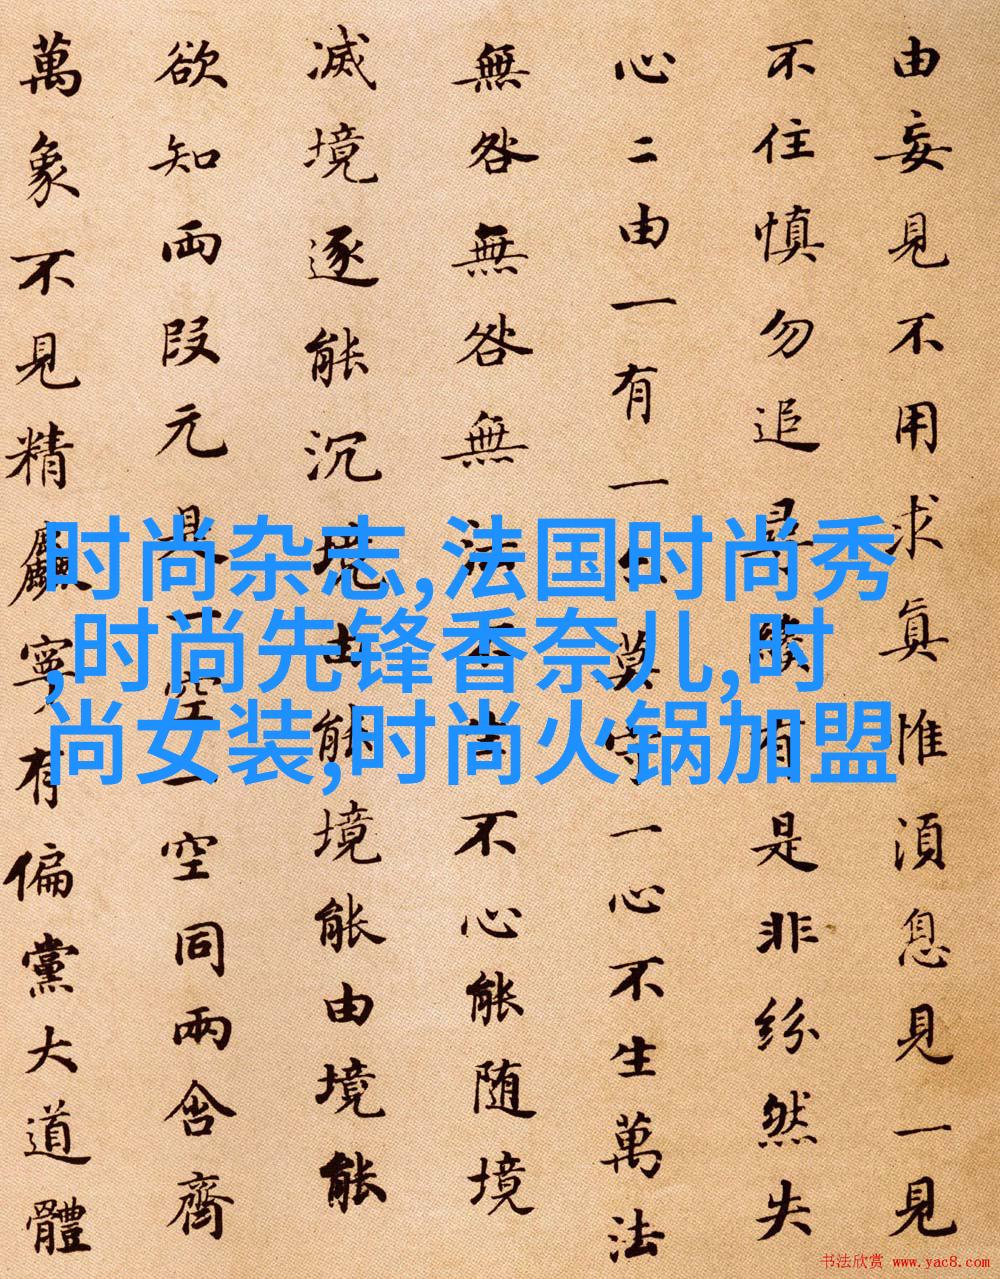 由妄見不用求真惟湏息見一見
不住慎勿追尋纔有是非紛然失
心二由一有一莫守一心不生萬法
無咎無咎無法不生不心能随境
滅境逐能沉境由能境能由境能
欲知兩段元是一空一空同兩含齊
萬象不見精麤寧有偏黨大道體
时尚杂志,法国时尚秀
,时尚先锋香奈儿,时
尚女装,时尚火锅加盟
书法欣赏 www.yac8.com